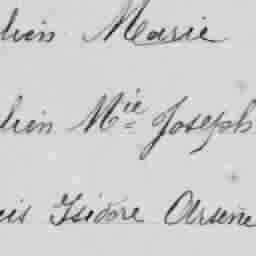 lien Marie
lien Mie Joseph
uis Isidore Arsène